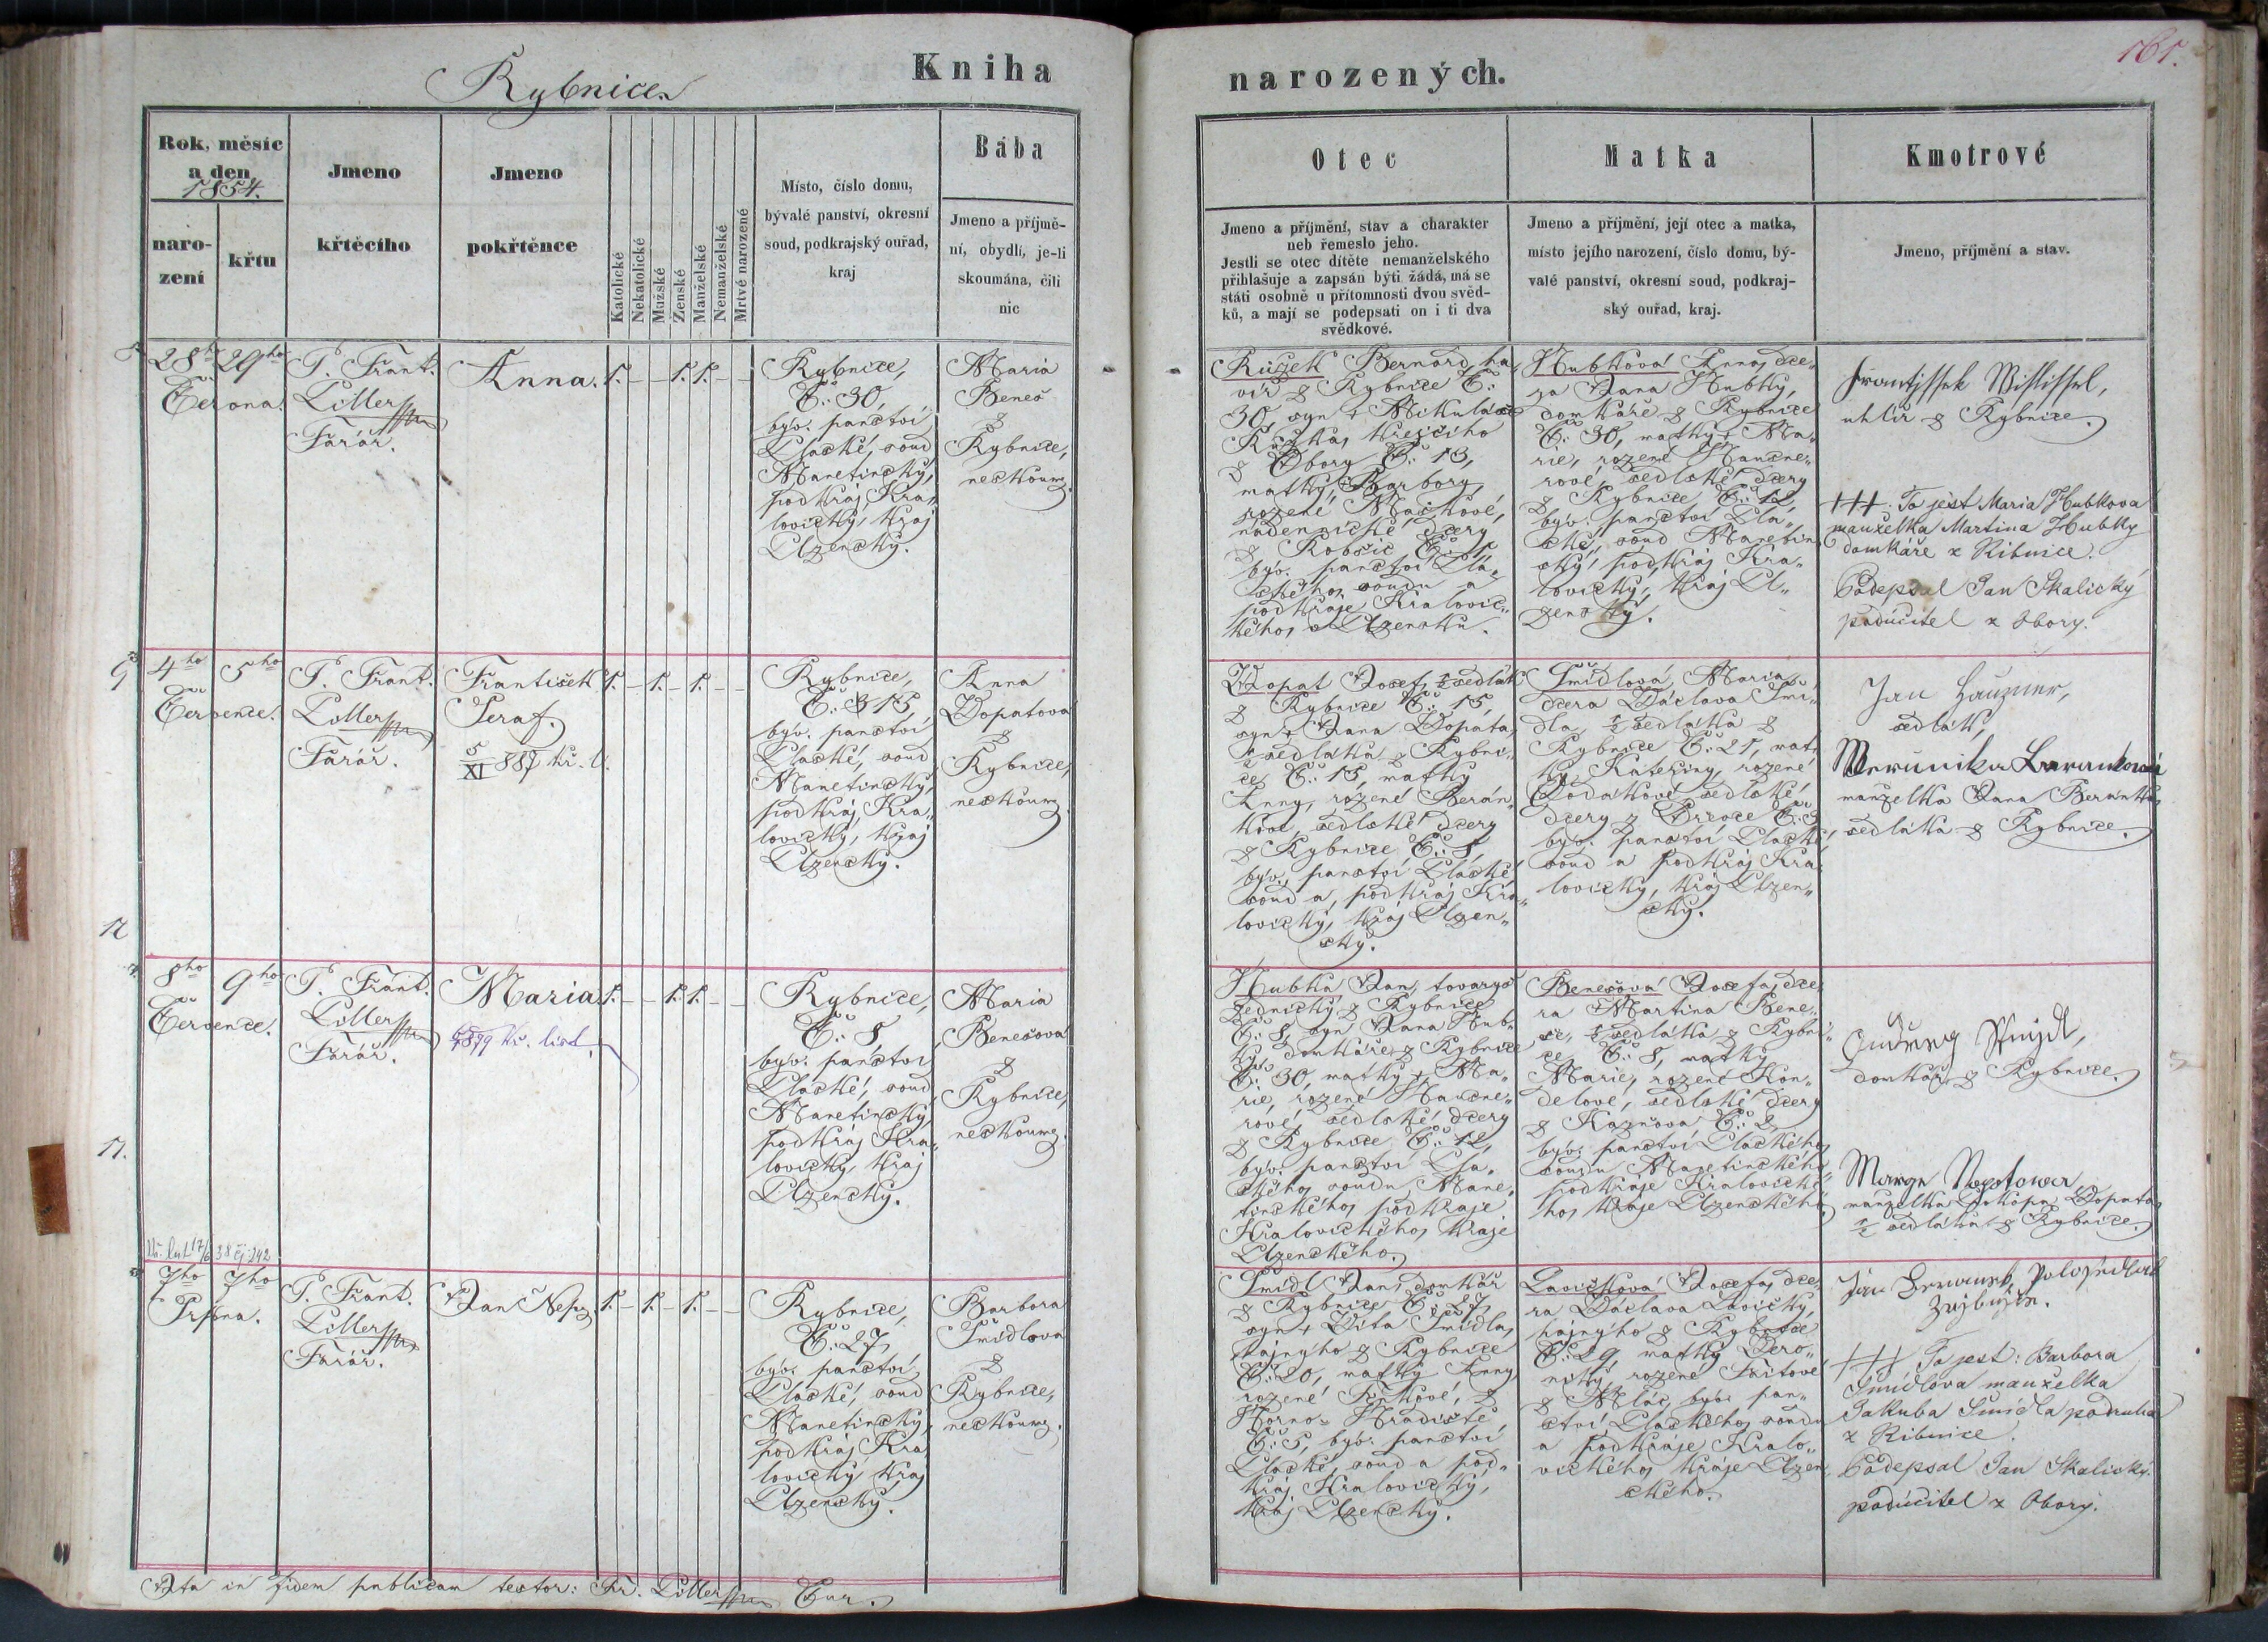 Rybnice.
Kniha
narozených.
161.
Rok, měsíc
a den
1854.
naro-
zení
křtu
Jmeno
křtěcího
Jmeno
pokřtěnce
Katolické
Nekatolické
Mužské
Ženské
Manželské
Nemanželské
Mrtvé narozené
Místo, číslo domu,
bývalé panství, okresní
soud, podkrajský ouřad,
kraj
Bába
Jmeno a příjmě-
ní, obydlí, je-li
skoumána, čili
nic
Otec
Jmeno a příjmění, stav a charakter
neb řemeslo jeho.
Jestli se otec dítěte nemanželského
přihlašuje a zapsán býti žádá, má se
státi osobně u přítomnosti dvou svěd-
ků, a mají se podepsati on i ti dva
svědkové.
Matka
Jmeno a příjmění, její otec a matka,
místo jejího narození, číslo domu, bý-
valé panství, okresní soud, podkraj-
ský ouřad, kraj.
Kmotrové
Jmeno, příjmění a stav.
28ho
29ho
Června.
P. Frant.
Farář.
Anna.
1. – – 1. 1. – –
Rybnice,
Č: 30,
býv. panství
Plaské, soud
Manetinský,
podkráj Kra„
lovický, kraj
Plzenský.
Maria
Beneš
z
Rybnice,
neskoum.
Růžek Bernard, ha„
víř z Rybnice Č:
30 syn + Mikuláše
Růžka, krejčího
z Obory Č: 13,
matky, Barbory,
rozené Mačkové,
nádennické dcery
z Č: 1,
býv. panství Pla„
ského, soudu a
podkraje Kralovic„
kého, v Plzensku.
Hubková Anna, dce„
ra Jana Hubky,
domkáře z Rybnice
Č: 30, matky + Ma„
rie, rozené
rové, sedlské dcery
z Rybnice, Č: 12,
býv. panství Pla„
ské, soud Manetin
ský, podkráj Kra„
lovický, kraj Pl„
zenský.
uhlíř z Rybnice.
+++. To jest Maria Hubkova
manželka Martina Hubky
domkáře z Ribnice.
Podepsal Jan Skalický
podučitel z Obory.
4ho
5ho
Července.
P. Frant.
Farář.
František
Seraf.
5/XI 887 kř. l.
1. – 1. – 1. – –
Rybnice,
Č: 15,
býv. panství
Plaské, soud
Manetinský,
podkráj Kra„
lovický, kraj
Plzenský.
Anna
Dopatova
z
Rybnice,
neskoum.
Dopat Josef, ½ sedlák
z Rybnice Č: 15,
syn + Jana Dopata,
½ sedláka z Rybni„
ce, Č: 15, matky
Anny, rozené Berán„
kové, sedlské dcery
z Rybnice Č: 8,
býv. panství Plaské
soud a podkráj Kra„
lovický, kraj Plzen„
ský.
Šmídlová Maria,
dcera Václava Šmí„
dla, ½ sedláka z
Rybnice Č: 21, mat„
ky Kateřiny, rozené
sedlské
dcery z
býv. panství Plaské,
soud a podkráj Kra„
lovický, kraj Plzen„
ský.
Jan
sedlák,
manželka Jana Beránka,
sedláka z Rybnice.
12
8ho
9ho
Července.
P. Frant.
Farář.
Maria
1. – – 1. 1. – –
Rybnice,
Č: 8
býv. panství
Plaské, soud
Manetinský,
podkráj Kra„
lovický, kraj
Plzenský.
Maria
Benešova
z
Rybnice,
neskoum.
Hubka Jan, tovaryš
zednický z Rybnice
Č: 8, syn Jana Hub„
ky, domkáře z Rybnice
Č: 30, matky + Ma„
rie, rozené
rové, sedlské dcery
z Rybnice, Č: 12,
býv. panství Pla„
ského, soudu Mane„
tinského, podkraje
Kralovického, kraje
Plzenského.
Benešová Josefa, dce„
ra Martina Bene„
še, ½ sedláka z Rybni„
ce, Č: 8, matky
Marie, rozené Kon„
delové, sedlské dcery
z Kaznova Č: 2,
býv. panství Plaského,
soudu Manetinského
podkraje Kralovické„
ho, kraje Plzenského.
domkář z Rybnice.
manželka Prokopa Dopata,
½ sedláka z Rybnice.
11.
7ho
7ho
Srpna.
P. Frant.
Farář.
Jan Nep.
1. – 1. – 1. – –
Rybnice,
Č: 27,
býv. panství
Plaské, soud
Manetinský,
podkráj Kra
lovický, kraj
Plzenský.
Barbora
Šmídlova
z
Rybnice,
neskoum.
Šmídl Jan, domkář
z Rybnice Č: 27,
syn + Víta Šmídla,
hájného z Rybnice
Č: 20, matky Anny,
rozené z
Horno- Hradiště
Č: 5, býv. panství
Plaské, soud a pod„
kráj Kralovický,
kraj Plzenský.
Lavičková Josefa, dce„
ra Václava Lavičky,
hájného z Rybnice
Č: 29 matky Vero„
niky, rozené
z býv. pan„
ství Plaského, soudu
a podkraje Kralo„
vického, kraje Plzen„
ského.
+++ To jest: Barbora
Šmidlova manželka
Jakuba Šmidla podruha
z Ribnice.
Podepsal Jan Skalický
podučitel z Obory.
Ita in fidem publicam testor: Fr. Cur.